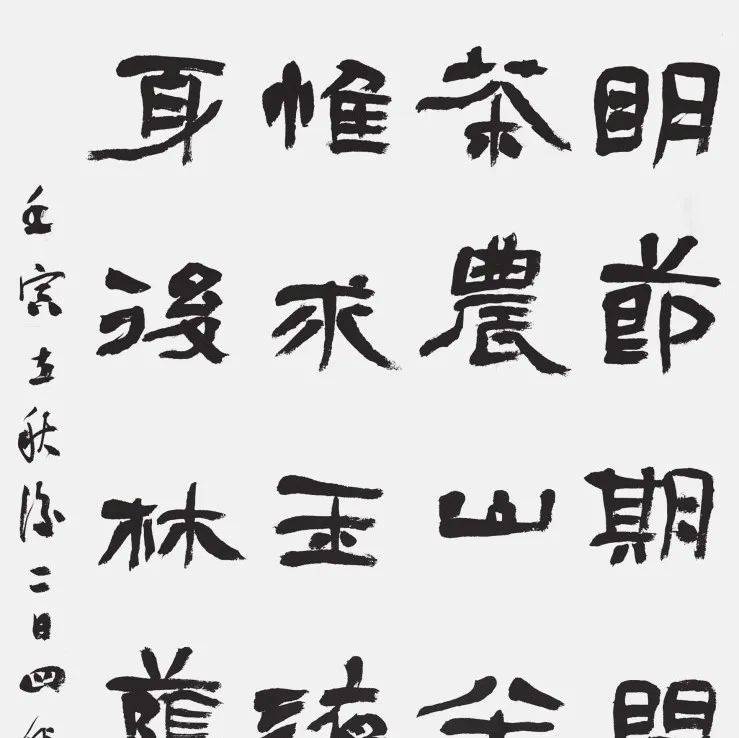 明節期
茶農山
惟求玉
後林蔭
壬寅立秋後二日四